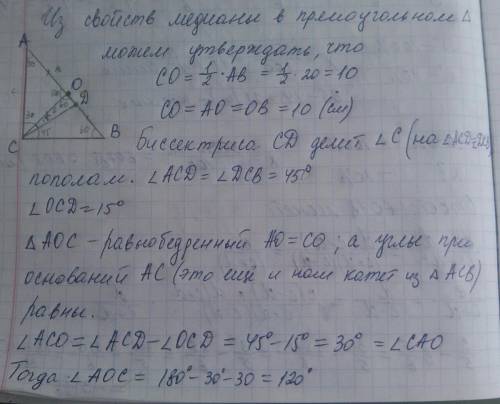 Из свойств медианы в прямоугольном Δ
можем утверждать, что
CO = 1/2 · AB = 1/2 · 20 = 10
CO = AO = OB = 10 (см)
Биссектриса CD делит ∠C (на ∠ACD=
пополам. ∠ACD = ∠DCB = 45°
∠OCD = 15°
ΔAOC - равнобедренный AO = CO; а углы при
оснований AC (это еще и нам катет из ΔACB)
равны.
∠ACO = ∠ACD - ∠OCD = 45° - 15° = 30° = ∠CAO
Тогда ∠AOC = 180° - 30° - 30 = 120°
A
O
D
30
45
60
C
B